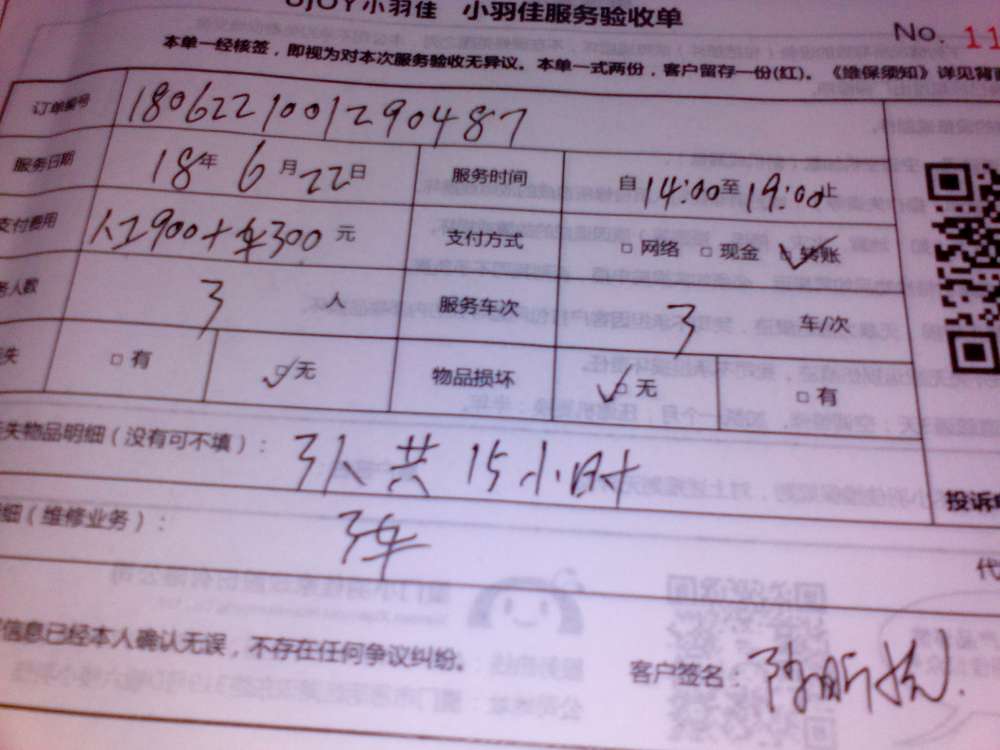 小羽佳 小羽佳服务验收单
No. 11
本单一经核签，即视为对本次服务验收无异议。本单一式两份，客户留存一份(红)。《维保须知》详见背面
订单编号 1806221001290487
服务日期 18年 6月22日 服务时间 自14:00至19:00止
支付费用 人工900+车300元 支付方式 □网络 □现金 ☑转账
务人数 3 人 服务车次 3 车/次
失 □有 ☑无 物品损坏 ☑无 □有
失物品明细（没有可不填）： 3人共15小时
投诉
细（维修业务）： 3车
代
信息已经本人确认无误，不存在任何争议纠纷。 客户签名：